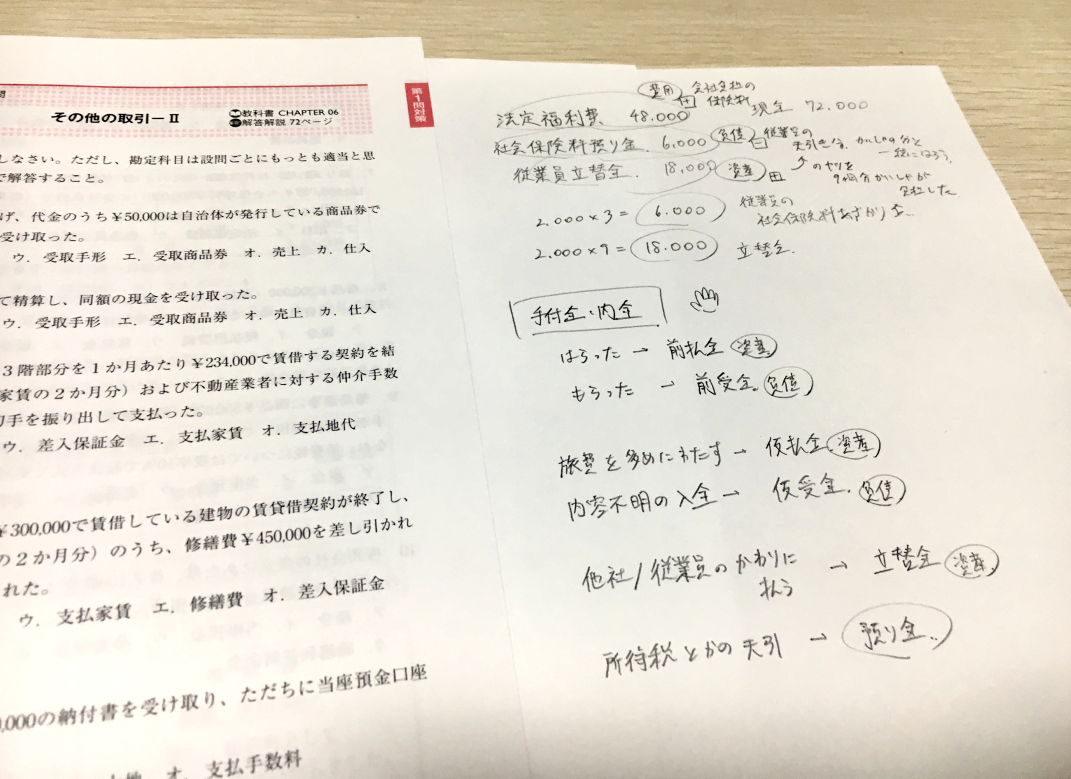 その他の取引－Ⅱ
教科書 CHAPTER 06
解答解説 72ページ
第1問対策
しなさい。ただし、勘定科目は設問ごとにもっとも適当と思
で解答すること。
げ、代金のうち￥50,000は自治体が発行している商品券で
受け取った。
ウ．受取手形　エ．受取商品券　オ．売上　カ．仕入
て精算し、同額の現金を受け取った。
ウ．受取手形　エ．受取商品券　オ．売上　カ．仕入
3階部分を1か月あたり￥234,000で賃借する契約を結
家賃の2か月分）および不動産業者に対する仲介手数
切手を振り出して支払った。
ウ．差入保証金　エ．支払家賃　オ．支払地代
￥300,000で賃借している建物の賃貸借契約が終了し、
の2か月分）のうち、修繕費￥450,000を差し引かれ
れた。
ウ．支払家賃　エ．修繕費　オ．差入保証金
0,000の納付書を受け取り、ただちに当座預金口座
オ．支払手数料
費用 会社負担の
保険料
法定福利費 48.000 現金 72.000
社会保険料預り金. 6.000 負債 従業員の
天引き分
従業員立替金. 18.000 資産
のヤツを
9ヶ月分かいしゃが
負担した
2.000×3＝6.000 従業員の
社会保険料あずかり金…
2.000×9＝18.000 立替金.
手付金・内金
はらった → 前払金 資産
もらった → 前受金. 負債
旅費を多めにわたす → 仮払金. 資産
内容不明の入金 → 仮受金. 負債
他社/従業員のかわりに
払う → 立替金 資産
所得税とかの天引 → 預り金.